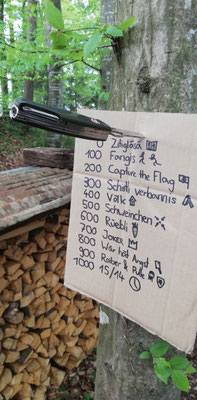 0 Zitiglösä
100 Fangis
200 Capture the Flag
300 Schiti verbannis
400 Völk
500 Schweinchen
600 Rüebli
700 JOKER
800 Wär hät Angst
900 Räuber &
1000 15/14